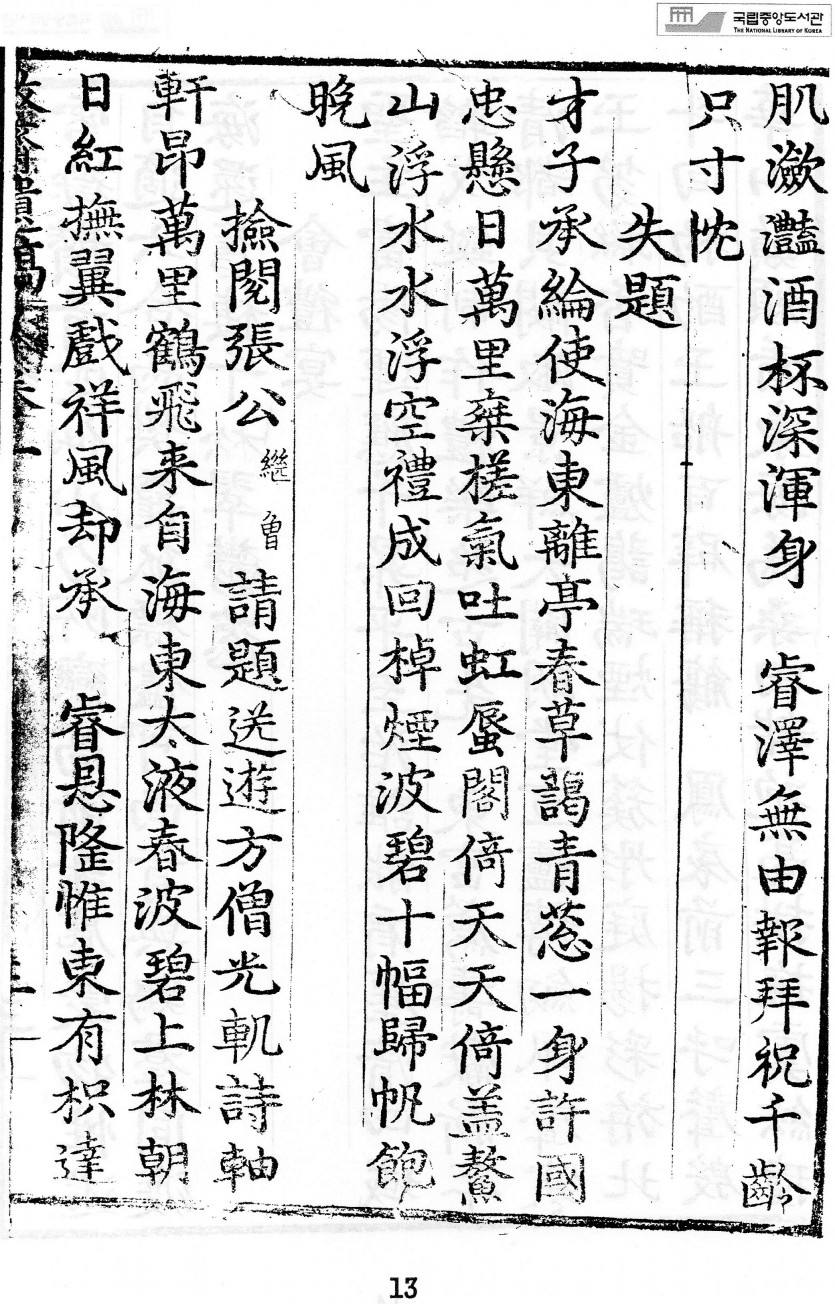 국립중앙도서관
THE NATIONAL LIBRARY OF KOREA
肌瀲灩酒杯深渾身 睿澤無由報拜祝千齡
只寸忱
失題
才子承綸使海東離亭春草謁青葱一身許國
忠懸日萬里乘槎氣吐虹蜃閣倚天天倚盖鰲
山浮水水浮空禮成回棹煙波碧十幅歸帆飽
晩風
撿閱張公繼曾請題送遊方僧光軏詩軸
軒昂萬里鶴飛来自海東太液春波碧上林朝
日紅撫翼戲祥風却承 睿恩隆惟東有枳達
遺稿 卷一
13